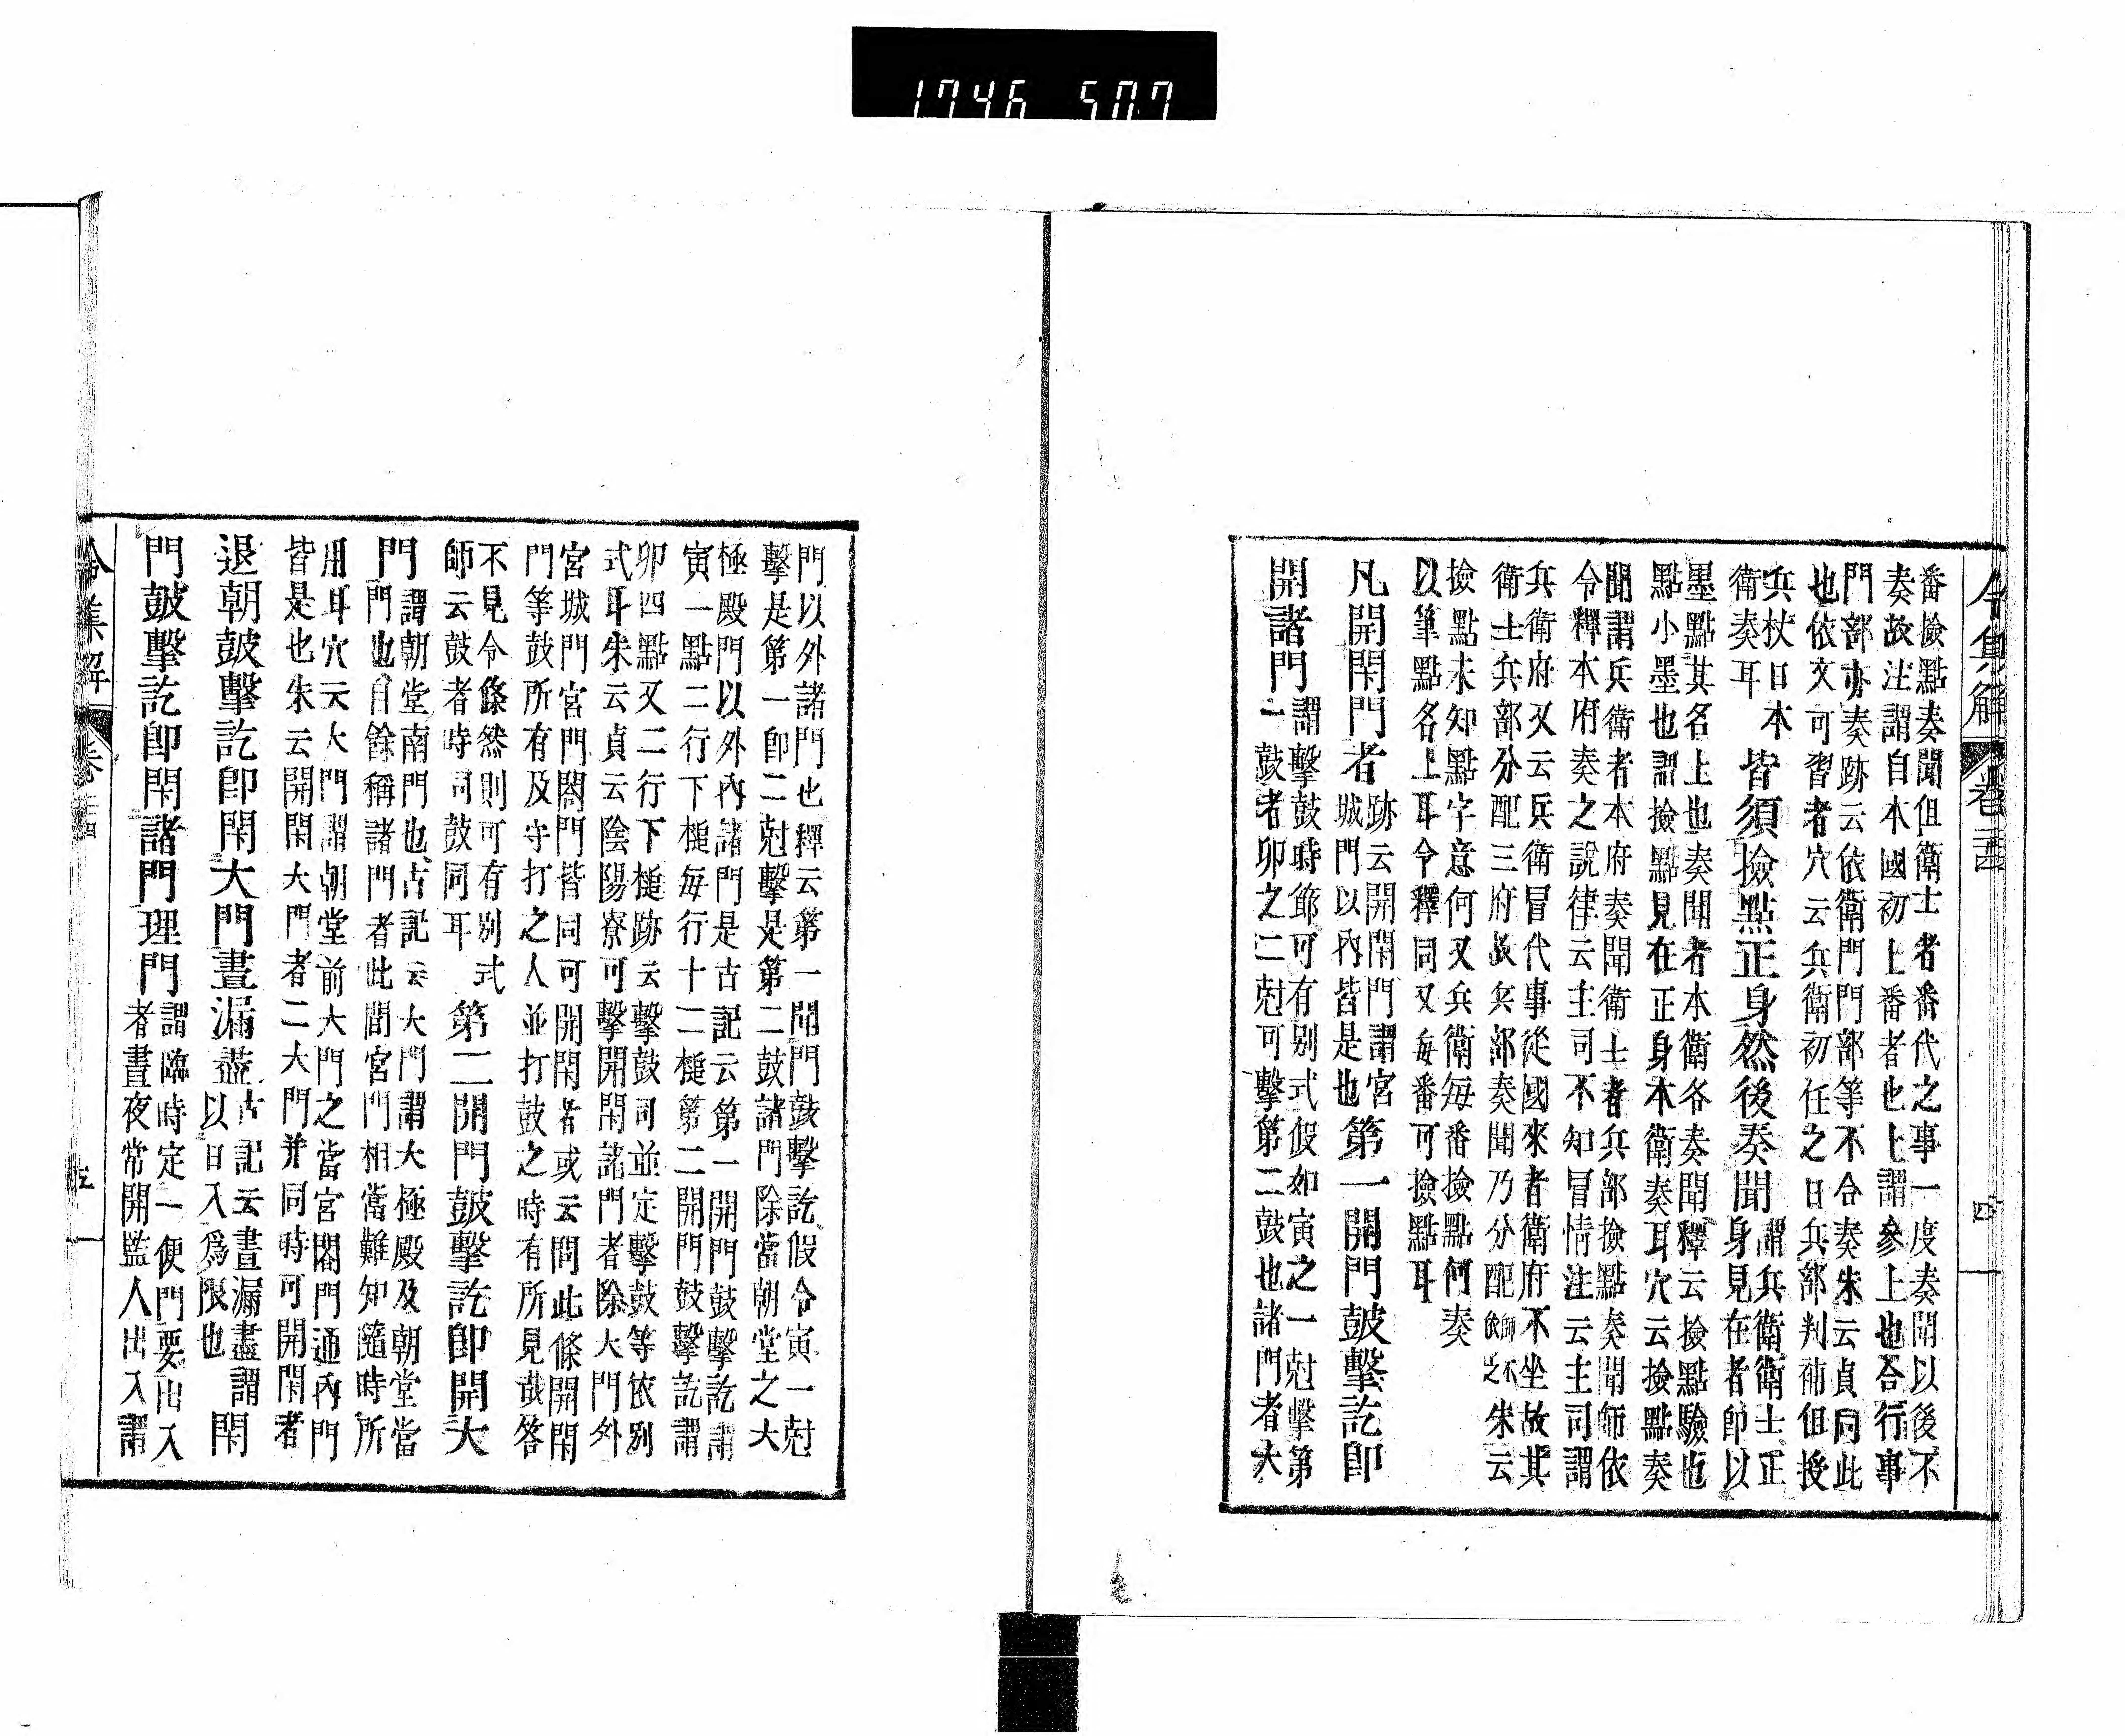 1746 507
令集解
卷二百
四
番撿點奏聞但衛士者番代之事一度奏聞以後不
奏故注謂自本國初上番者也上謂參上也合行事
門部亦奏跡云依衛門門部等不合奏朱云貞同此
也依文可習者穴云兵衛初任之日兵部判補但授
兵杖日本
衛奏耳
皆須撿點正身然後奏聞
謂兵衛衛士正
身見在者卽以
墨點其名上也奏聞者本衛各奏聞釋云撿點驗也
點小墨也謂撿點見在正身本衛奏耳穴云撿點奏
聞謂兵衛者本府奏聞衛士者兵部撿點奏聞師依
令釋本府奏之說律云主司不知冒情注云主司謂
兵衛府又云兵衛冒代事從國來者衛府不坐故其
衛士兵部分配三府故兵部奏聞乃分配
師不
依之
朱云
撿點未知點字意何又兵衛每番撿點何奏
以筆點名上耳令釋同又每番可撿點耳
凡開閇門者
跡云開閇門謂宮
城門以內皆是也
第一開門皷擊訖卽
開諸門
謂擊鼓時節可有別式假如寅之一尅擊第
一鼓者卯之二尅可擊第二鼓也諸門者大
門以外諸門也釋云第一開門鼓擊訖假令寅一尅
擊是第一卽二尅擊是第二鼓諸門除當朝堂之大
極殿門以外內諸門是古記云第一開門鼓擊訖謂
寅一點二行下槌每行十二槌第二開門鼓擊訖謂
卯四點又二行下槌跡云擊鼓司並定擊鼓等依別
式耳朱云貞云陰陽寮可擊開閇諸門者除大門外
宮城門宮門閤門皆同可開閇者或云問此條開閇
門等鼓所有及守打之人並打鼓之時有所見哉答
不見令條然則可有別式
師云鼓者時司鼓同耳
第二開門皷擊訖卽開大
門
謂朝堂南門也古記云大門謂大極殿及朝堂當
門門也自餘稱諸門者此間宮門相當難知隨時所
用耳穴云大門謂朝堂前大門之當宮閤門通內門
皆是也朱云開閇大門者二大門并同時可開閇者
退朝皷擊訖卽閇大門晝漏盡
古記云晝漏盡謂
以日入爲限也
閇
門皷擊訖卽閇諸門理門
謂臨時定一便門要出入
者晝夜常開監人出入謂
令集解
卷
五